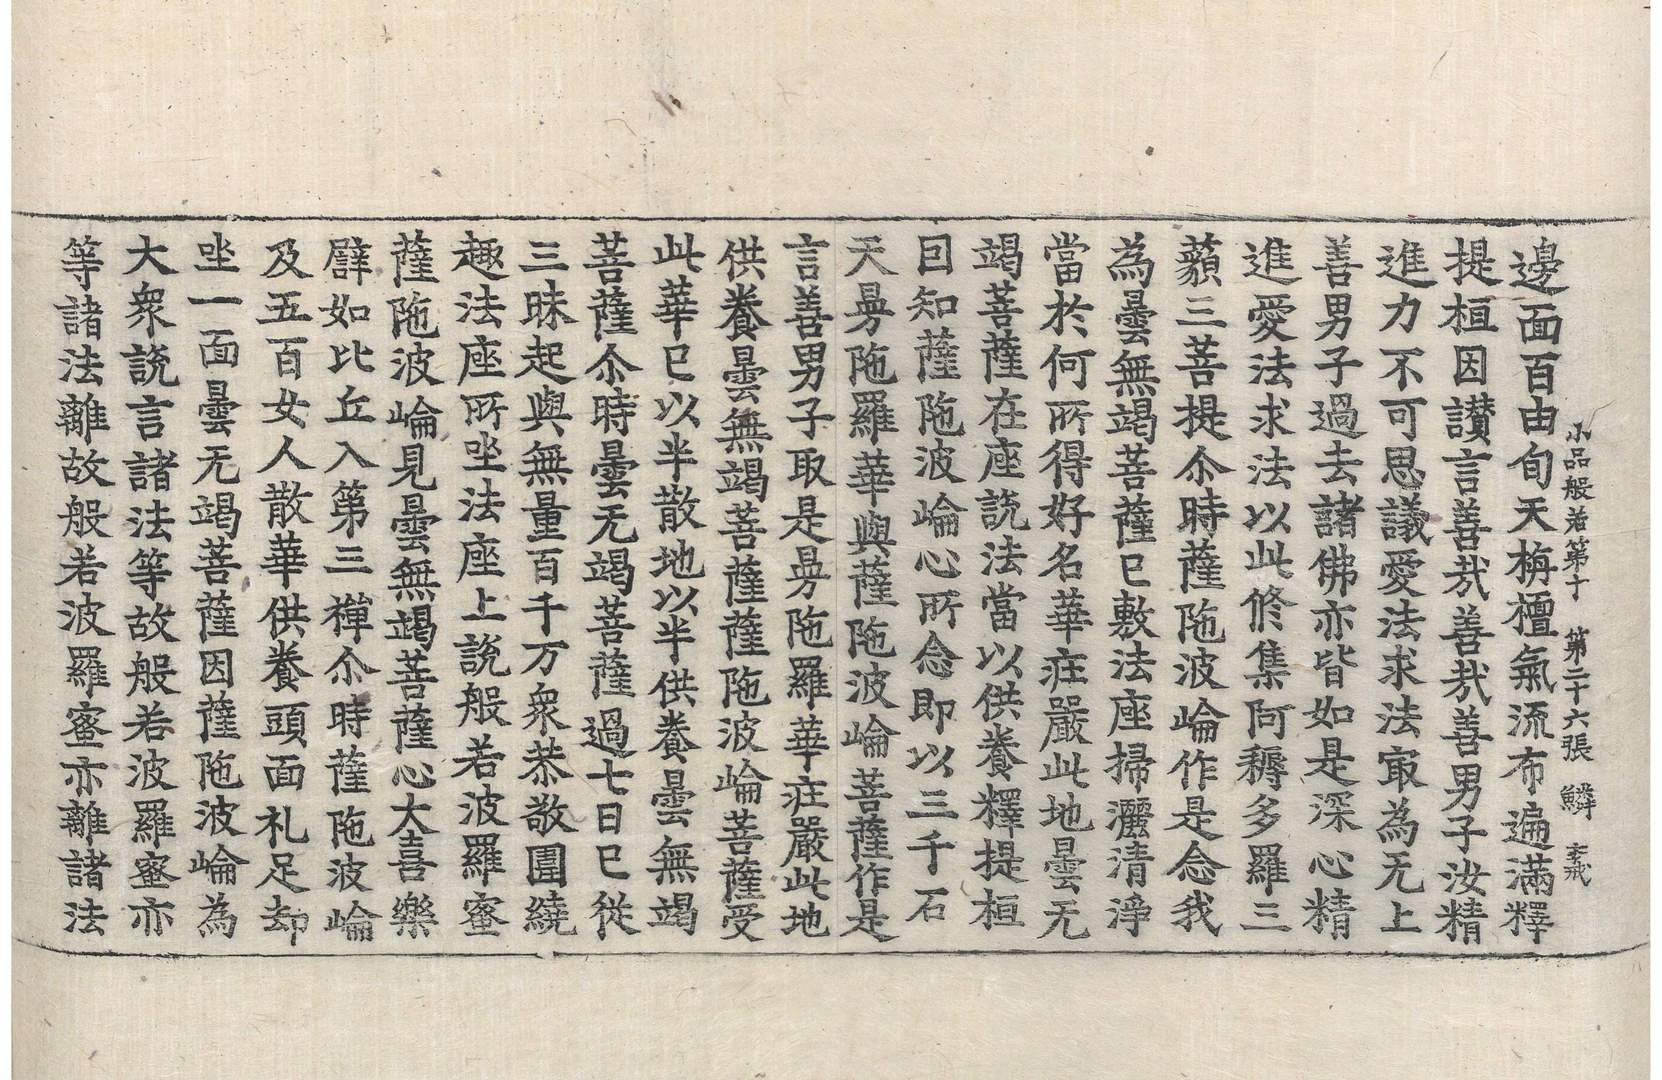 小品般若第十 第二十六張 鱗
邊面百由旬天栴檀氣流布遍滿釋
提桓因讃言善哉善哉善男子汝精
進力不可思議愛法求法㝡為无上
善男子過去諸佛亦皆如是深心精
進愛法求法以此修集阿耨多羅三
藐三菩提尒時薩陁波崘作是念我
為曇無竭菩薩已敷法座掃灑清淨
當於何所得好名華莊嚴此地曇无
竭菩薩在座說法當以供養釋提桓
因知薩陁波崘心所念即以三千石
天曼陁羅華與薩陁波崘菩薩作是
言善男子取是曼陁羅華莊嚴此地
供養曇無竭菩薩薩陁波崘菩薩受
此華已以半散地以半供養曇無竭
菩薩尒時曇无竭菩薩過七日已從
三昧起與無量百千万衆恭敬圍繞
趣法座所坐法座上說般若波羅蜜
薩陁波崘見曇無竭菩薩心大喜樂
譬如比丘入第三禪尒時薩陁波崘
及五百女人散華供養頭面礼足却
坐一面曇无竭菩薩因薩陁波崘為
大衆說言諸法等故般若波羅蜜亦
等諸法離故般若波羅蜜亦離諸法